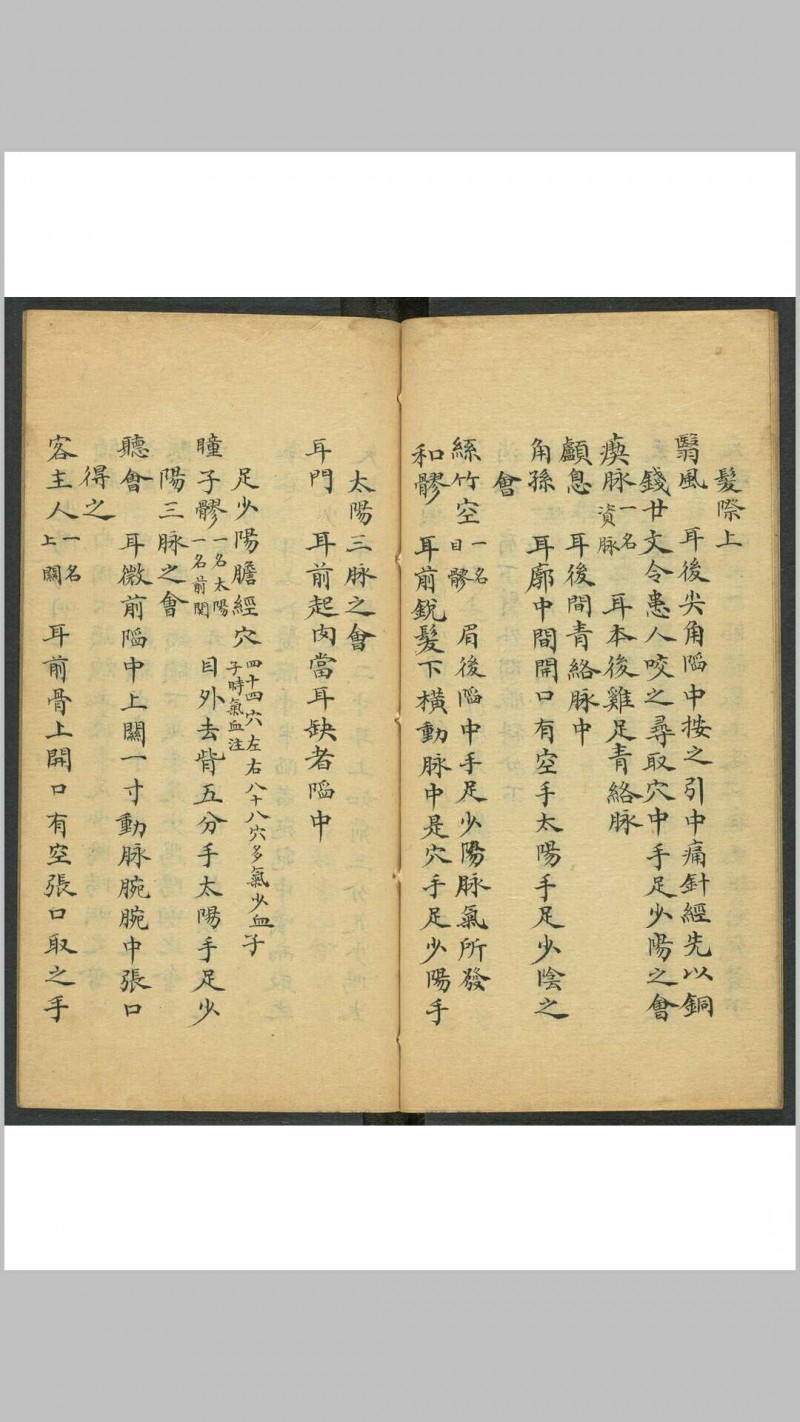 髮際上
翳風　耳後尖角陷中按之引中痛針經先以銅
錢廿文令患人咬之尋取穴中手足少陽之會
瘈脉一名資脉　耳本後雞足青絡脉
顱息　耳後間青絡脉中
角孫　耳廓中間開口有空手太陽手足少陰之
會
絲竹空一名目髎　眉後陷中手足少陽脉氣所發
和髎　耳前銳髮下橫動脉中是穴手足少陽手
太陽三脉之會
耳門　耳前起肉當耳缺者陷中
足少陽膽經穴四十四穴左右八十八穴多氣少血子
子時氣血注
瞳子髎一名太陽一名前関　目外去眥五分手太陽手足少
陽三脉之會
聽會　耳微前陷中上關一寸動脉腕腕中張口
得之
客主人一名上關　耳前骨上開口有空張口取之手